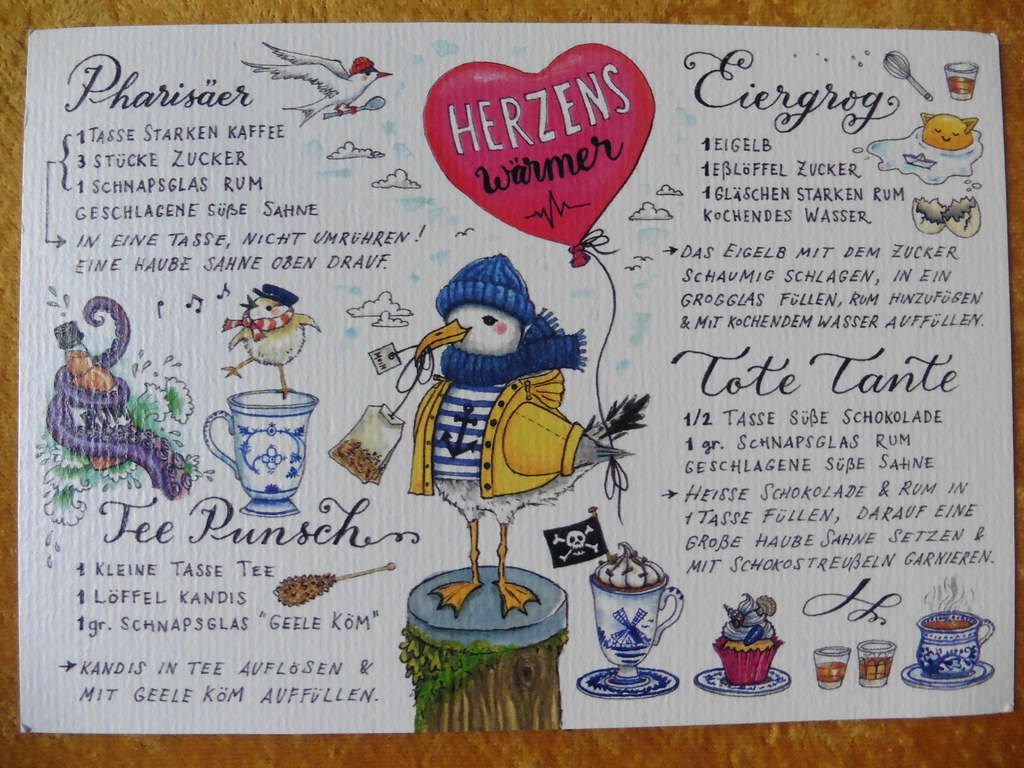 Pharisäer
1 TASSE STARKEN KAFFEE
3 STÜCKE ZUCKER
1 SCHNAPSGLAS RUM
GESCHLAGENE SÜßE SAHNE
IN EINE TASSE, NICHT UMRÜHREN!
EINE HAUBE SAHNE OBEN DRAUF.
HERZENS
wärmer
Eiergrog
1 EIGELB
1 EßLÖFFEL ZUCKER
1 GLÄSCHEN STARKEN RUM
KOCHENDES WASSER
DAS EIGELB MIT DEM ZUCKER
SCHAUMIG SCHLAGEN, IN EIN
GROGGLAS FÜLLEN, RUM HINZUFÜGEN
& MIT KOCHENDEM WASSER AUFFÜLLEN.
Tee Punsch
1 KLEINE TASSE TEE
1 LÖFFEL KANDIS
1 gr. SCHNAPSGLAS "GEELE KÖM"
KANDIS IN TEE AUFLÖSEN &
MIT GEELE KÖM AUFFÜLLEN.
Tote Tante
1/2 TASSE SÜßE SCHOKOLADE
1 gr. SCHNAPSGLAS RUM
GESCHLAGENE SÜßE SAHNE
HEISSE SCHOKOLADE & RUM IN
1 TASSE FÜLLEN, DARAUF EINE
GROßE HAUBE SAHNE SETZEN &
MIT SCHOKOSTREUßELN GARNIEREN.